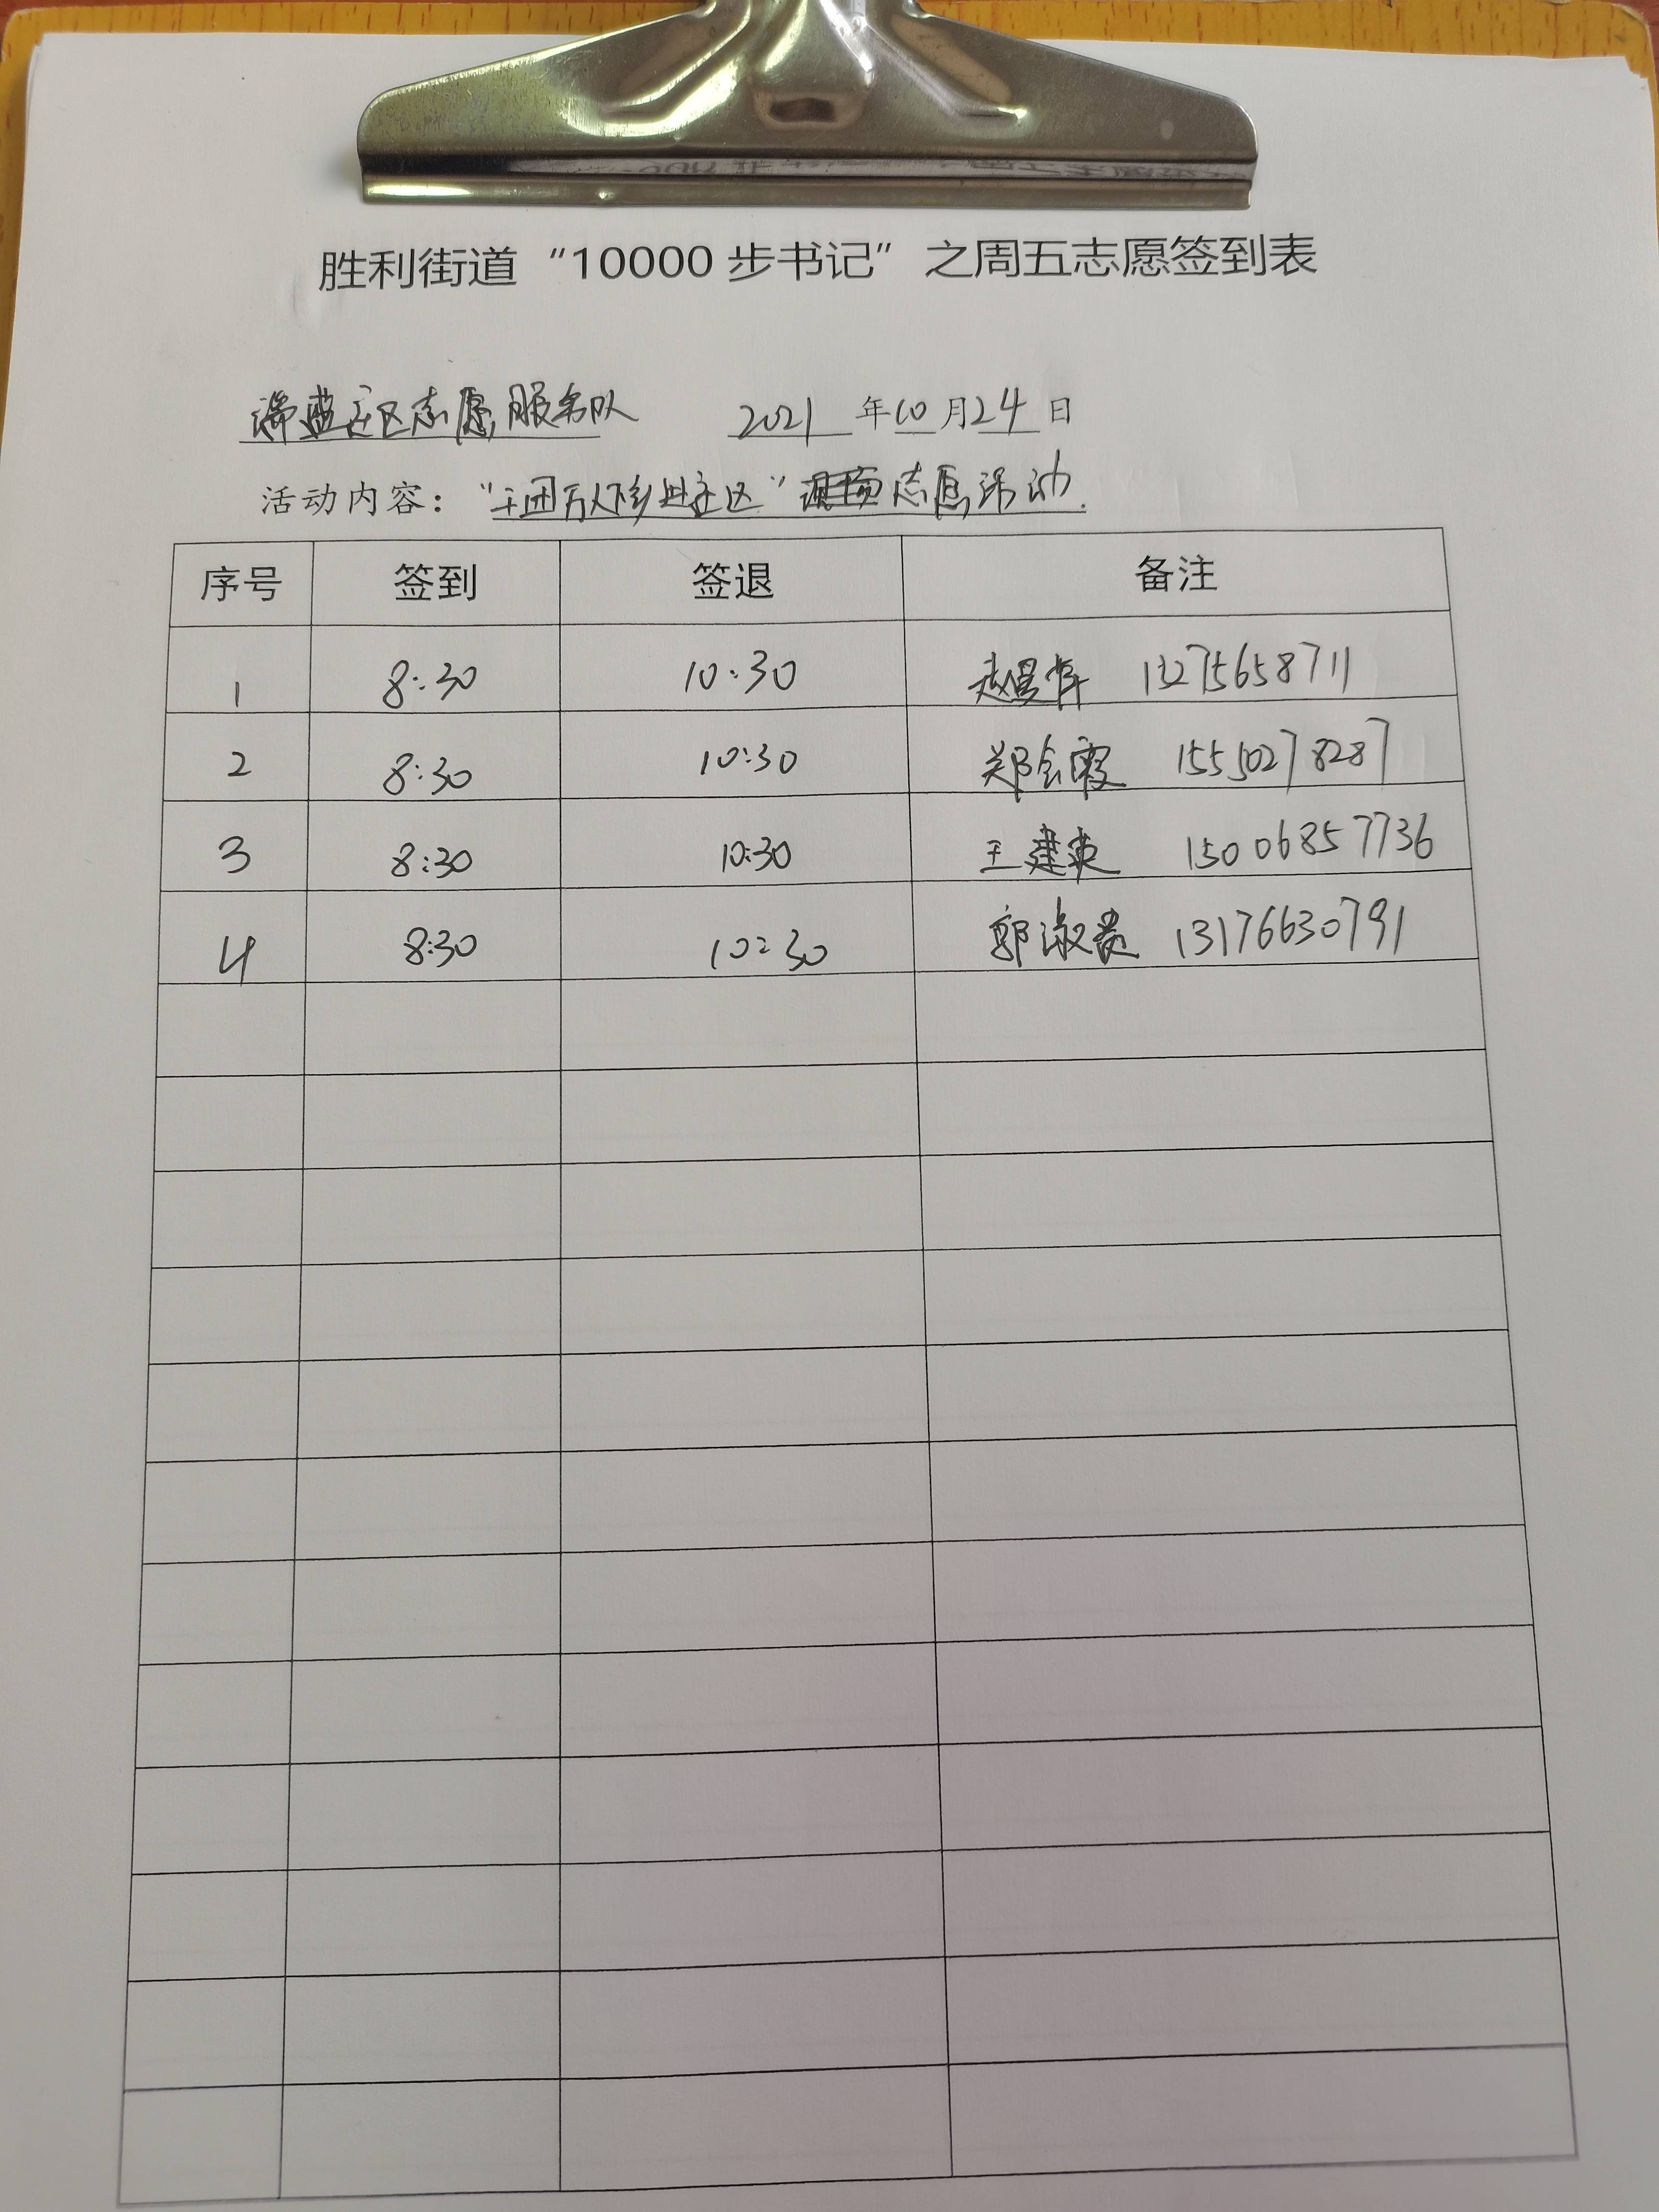 胜利街道“10000步书记”之周五志愿签到表
盛社区志愿服务队 2021年10月24日
活动内容：“千团万人下乡进社区”志愿活动.
序号 签到 签退 备注
1 8:30 10:30 赵 13275658711
2 8:30 10:30 郑会霞 15550278287
3 8:30 10:30 王建英 15006857736
4 8:30 10:30 郭淑贵 13176630791